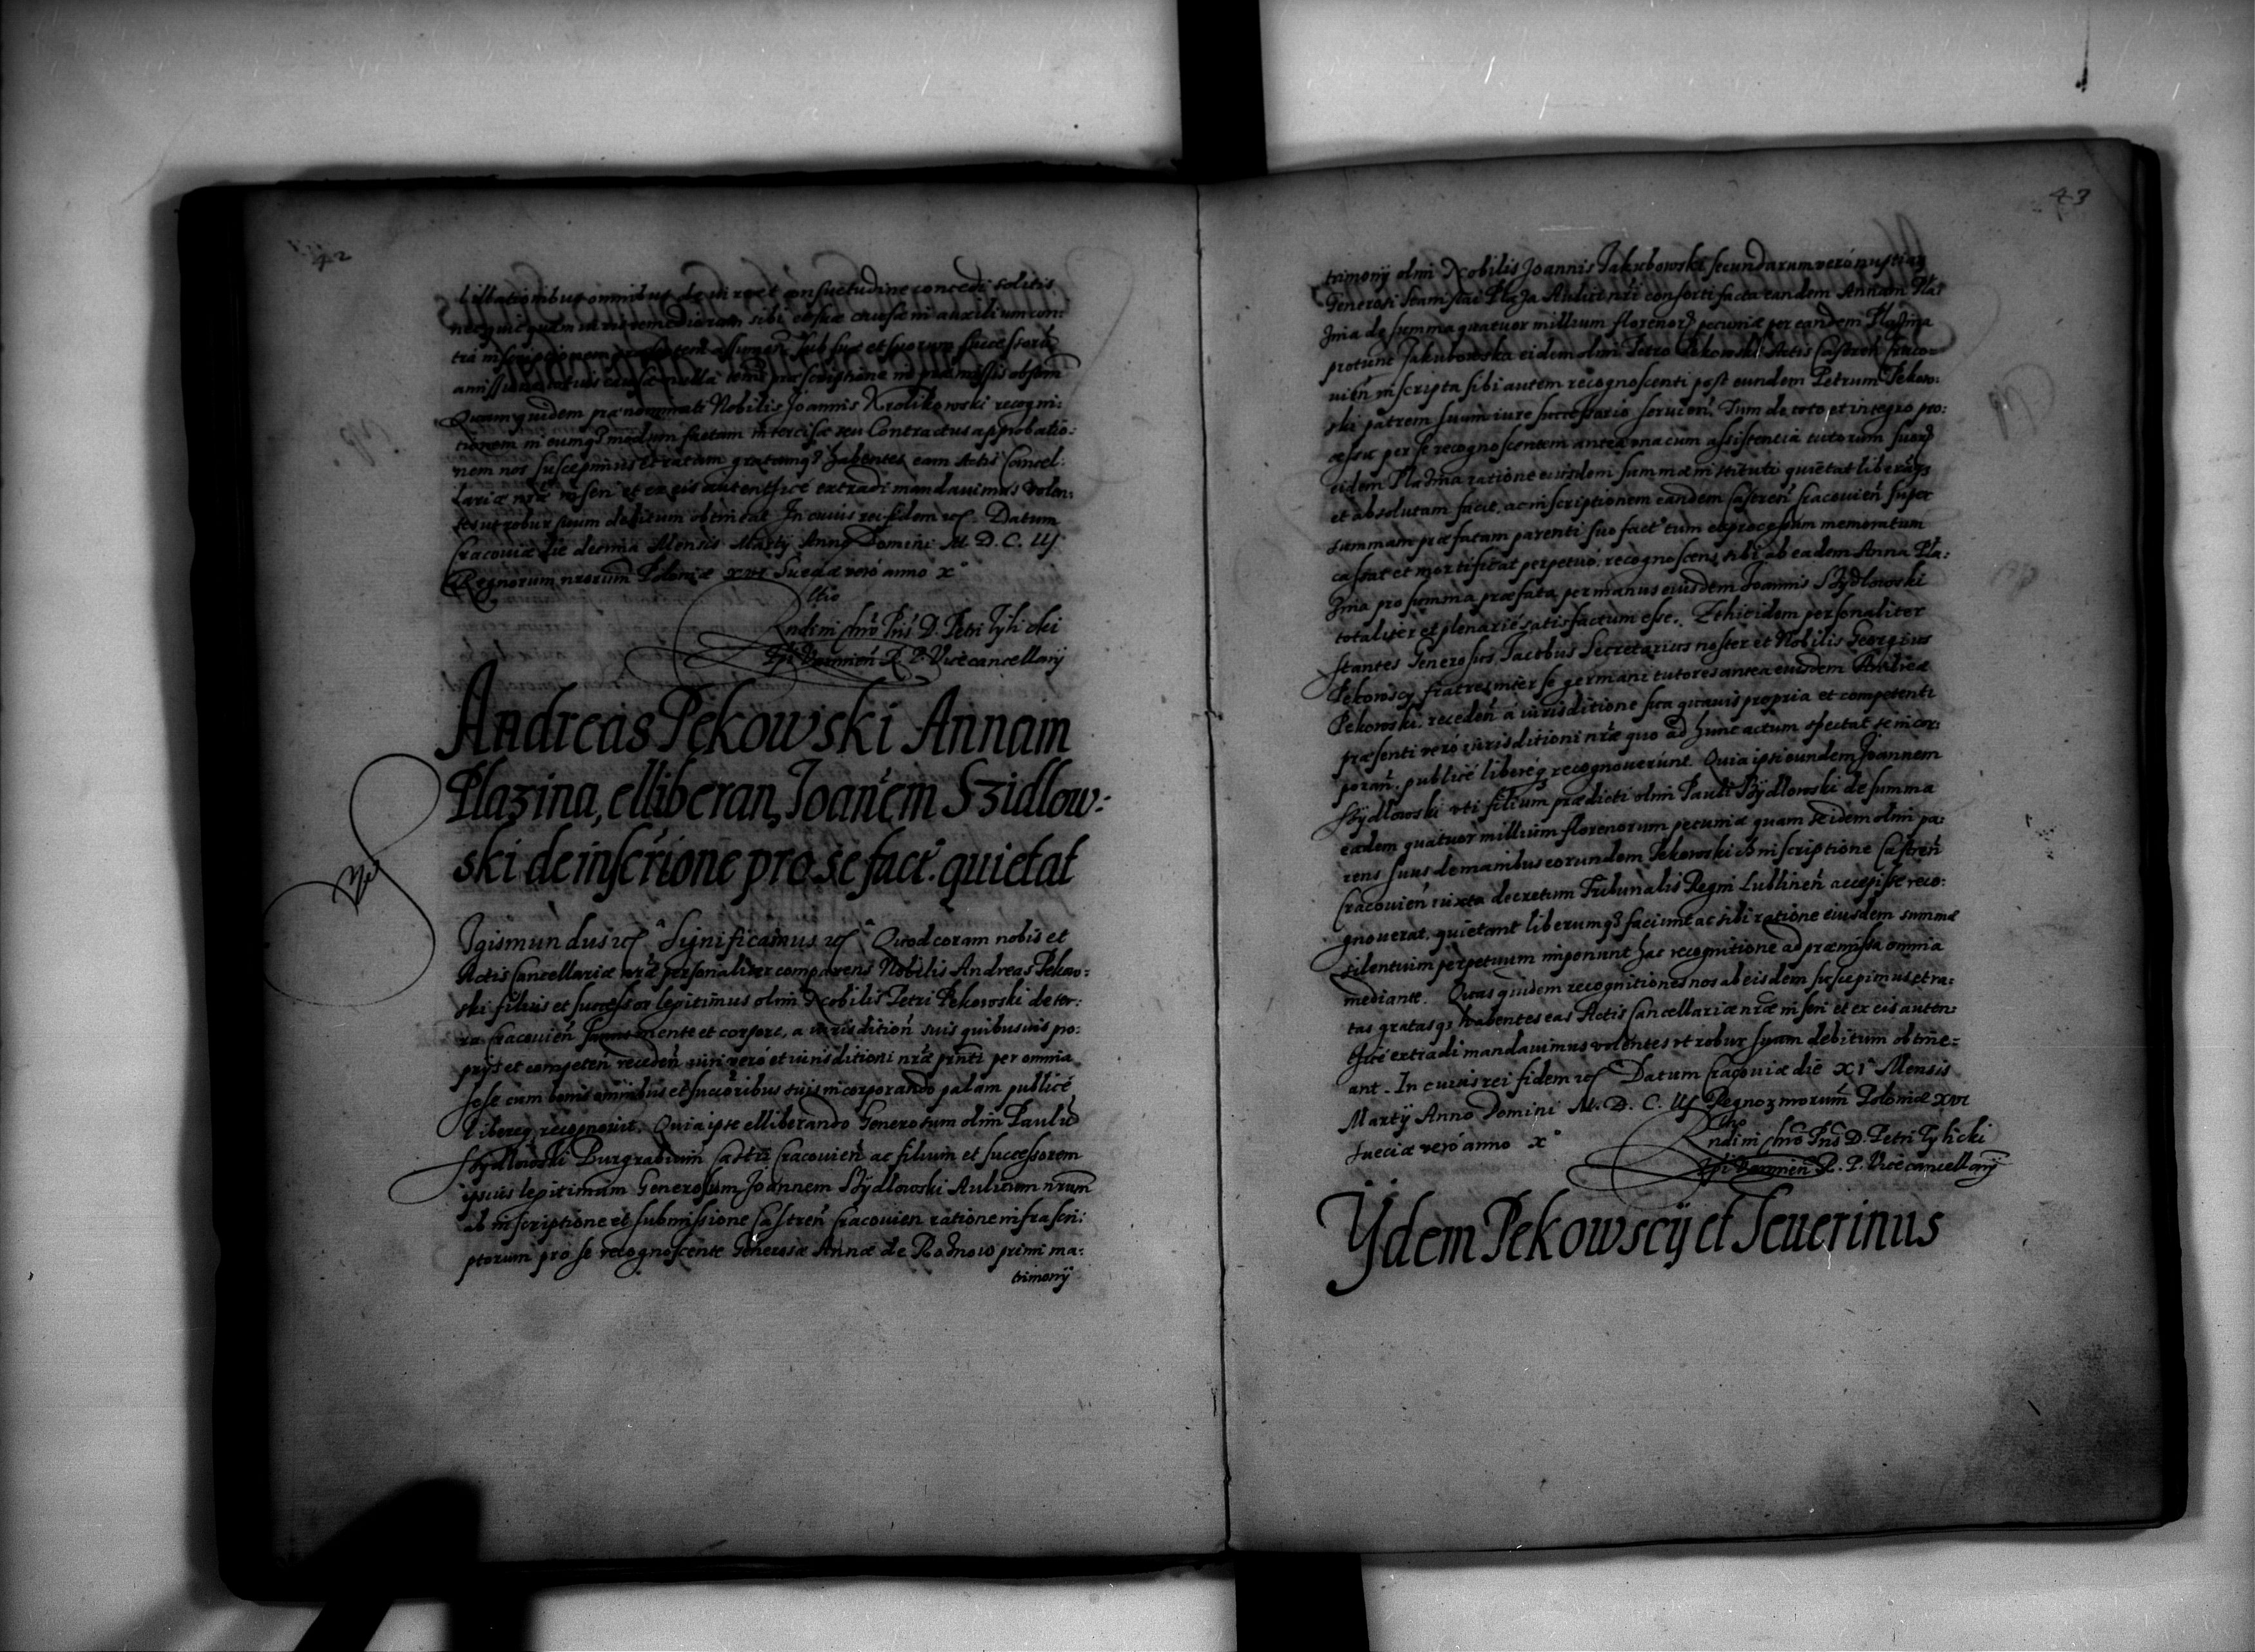 42
omnibus de iure et consuetudine concedi solitis
neque quam iuris remediorum sibi causæ in auxilium con:
tra inscriptionem præsentem assumen. sub suæ et suorum successorū
amissione totius causæ nulla terræ præscriptione in præmissis obstan
Quam quidem prænominati Nobilis Joannis Krolikowski recogni:
tionem in eumq3 modum factam intercisæ seu Contractus approbatio:
nem nos suscepimus et ratam gratamq3 habentes eam Actis Cancel:
lariæ nr̃æ inseri et ex eis autenticé extradi mandauimus volen:
tes ut robur suum debitum obtineat In cuius rei fidem etc. Datum
Cracouiæ die decima Mensis Martÿ Anno Domini M. D. C. IIJ
Regnorum nrorum Poloniæ xvi Sueciæ veró anno x°
Rndi in Chro Pris D. Petri Tylicki
Epi Varmien R. P. Vicecancellarÿ
Andreas Pekowski Annam
Plazina, elliberan, Joañem Szidlow:
ski de inscrione pro se fact. quietat
Sigismundus etc Significamus etc Quod coram nobis et
Actis Cancellariæ nræ personaliter comparens Nobilis Andreas Pekow:
ski filius et successor legitimus olim Nobilis Petri Pekowski de ter:
ra Cracouien̄ sanus mente et corpore, a iurisdition̄ suis quibusuis pro:
prÿs et competen̄ receden̄ iuri veró et iurisditioni nræ prnti per omnia
sese cum bonis omnibus et successoribus suis incorporando palam publicé
libereq, recognouit. Quia ipse elliberando Generosum olim Paulū
Szÿdlowski Burgrabium Castri Cracouien̄ ac filium et successorem
ipsius legitimum Generosum Joannem Szÿdlowski Aulicum nrum
ab inscriptione et submissione Castren̄ Cracouien ratione infrascri:
ptorum pro se recognoscente Generosæ Annæ de Rožnow primi ma:
trimonÿ
43
trimonÿ olim Nobilis Joannis Jakubowski secundarum veró nuptiarū
Generosi Stanislai Plaza Aulici nri consorti facta eandem Annam Pla:
zina de summa quatuor millium florenor pecuniæ per eandem Plazina
protunc Jakubowska eidem olim Petro Pekowski Actis Castren̄ Craco:
uien̄ inscripta sibi autem recognoscenti post eundem Petrum Pekow:
ski patrem suum iure successorio seruien̄. Tum de toto et integro pro:
cessu per se recognoscentem antea vna cum assistentia tutorum suor
eidem Plazina ratione eiusdem summæ instituti quietat liberāq3
et absolutam facit, ac inscriptionem eandem Castren̄ Cracouien̄ super
summam præfatam parenti suo fact tum et processum memoratum
cassat et mortificat perpetuó, recognoscens sibi ab eadem Anna Pla:
zina pro summa præfata per manus eiusdem Joannis Szÿdlowski
totaliter et plenarié satisfactum esse. Ibidem personaliter
stantes Generosus Jacobus Secretarius noster et Nobilis Georgius
Pekowscy fratres inter se germani tutores antea eiusdem Andreæ
Pekowski, receden̄ á iurisditione sua quauis propria et competenti
præsenti veró iurisditioni nræ quo ad hunc actum spectat se incor:
poran̄, publicé liberéq3 recognouerunt. Quia ipsi eundem Joannem
Szÿdlowski vti filium prædicti olim Pauli Szÿdlowski de summa
eadem quatuor millium florenorum pecuniæ quam idem olim pa:
rens suus de manibus eorundem Pekowski ob inscriptione Castren̄
Cracouien̄ iuxta decretum Tribunalis Regni Lublinen̄ accepisse reco:
gnouerat, quietant liberumq3 faciunt ac sibi ratione eiusdem summæ
silentium perpetuum imponunt hac recognitione ad præmissa omnia
mediante. Quas quidem recognitiones nos ab eisdem suscepimus et ra:
tas gratasq3 habentes eas Actis Cancellariæ nræ inseri et ex eis auten:
ticé extradi mandauimus volentes vt robur suum debitum obtine=
ant. In cuius rei fidem etc Datum Cracouiæ die XI° Mensis
Martÿ Anno Domini M. D. C. IIJ Regnor nrorum Poloniæ XVI
Sueciæ veró anno X°
Rndi in Chro Pris D. Petri Tylicki
Epi Varmien̄ R. P. Vicecancellarÿ
Ÿdem Pekowscÿ et Seuerinus